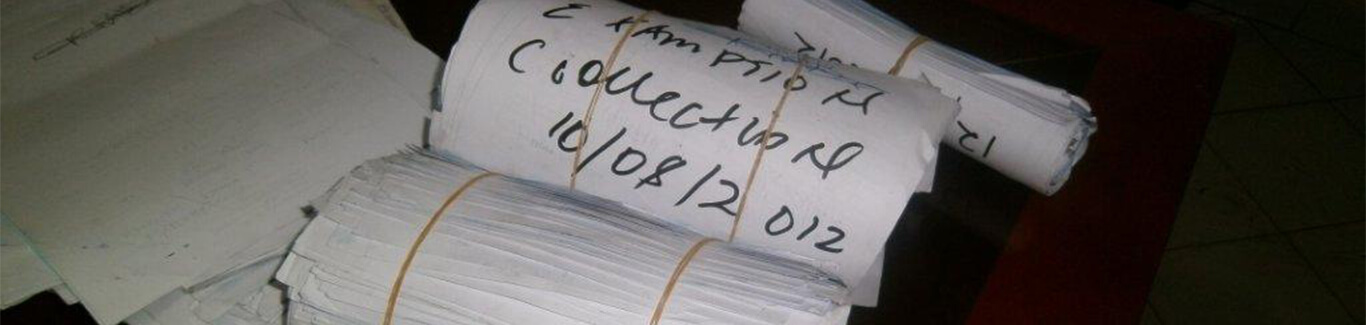 Exampsion
Collection
10/08/2012